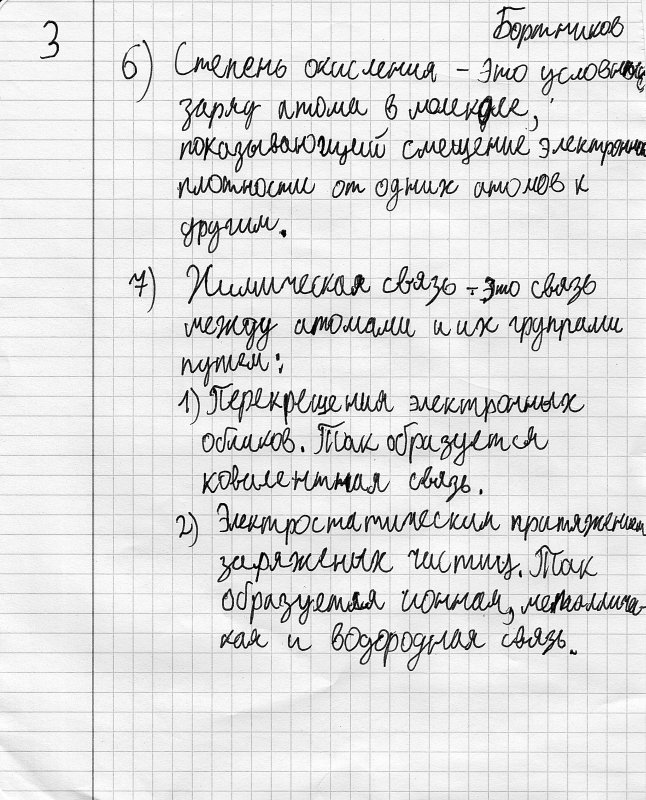 3
Бортников
6) Степень окисления – это условный
заряд атома в молекуле,
показывающий смещение электронной
плотности от одних атомов к
другим.
7) Химическая связь – это связь
между атомами и их группами
путем:
1) Перекрещения электронных
облаков. Так образуется
ковалентная связь.
2) Электростатическим притяжением
заряженых частиц. Так
образуется ионная, металличес-
кая и водородная связь.